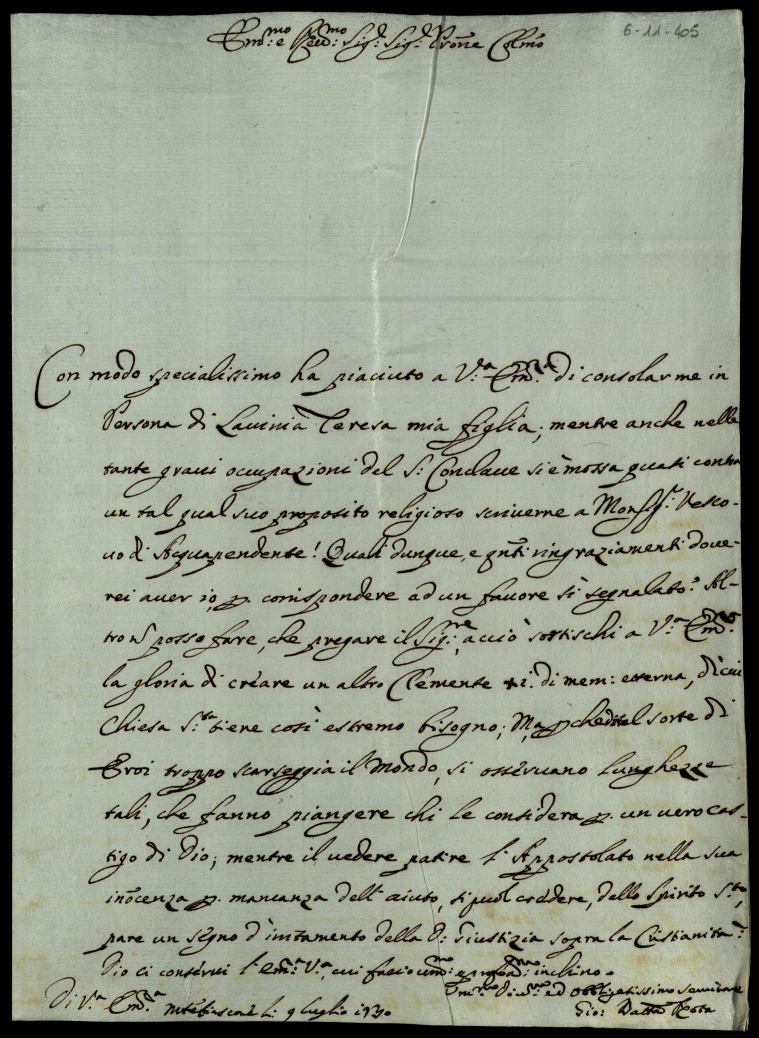 Em.mo e Reu.mo Sig.r Sig.r Prone Colmo
6-11-405
Con modo specialissimo ha piaciuto a V.a Em.a di consolarme in
Persona di Lauinia Teresa mia figlia; mentre anche nelle
tante graui occupazioni del S: Conclaue si è mossa quasi contro
un tal qual suo proposito religioso scriuerne a Monsig.r Vesco-
uo di Acquapendente! Quali dunque, e qnti ringraziamenti doue-
rei auer io, p. corrispondere ad un fauore sì segnalato? Al-
tro ñ posso fare, che pregare il Sig.re, acciò sortischi a V.a Em.a
la gloria di creare un altro Clemente xi. di mem: eterna, di cui
Chiesa S.ta tiene così estremo bisogno; Ma, pche di tal sorte di
Eroi troppo scarseggia il Mondo, si osseruano lunghezze
tali, che fanno piangere chi le considera p. un uero cas-
tigo di Dio; mentre il uedere patire l'Appostolato nella sua
inocenza p. mancanza dell'aiuto, si puol credere, dello Spirito S.to,
pare un segno d'iritamento della D: Giustizia sopra la Cristianità:
Dio ci conserui l'Em.a V.a, cui faccio um.mo e profod.mo inchino.
Di V.a Em.a li 9 luglio 1730
Um.mo Di.mo ed obbligatissimo seruitore
Gio: Batta Rota